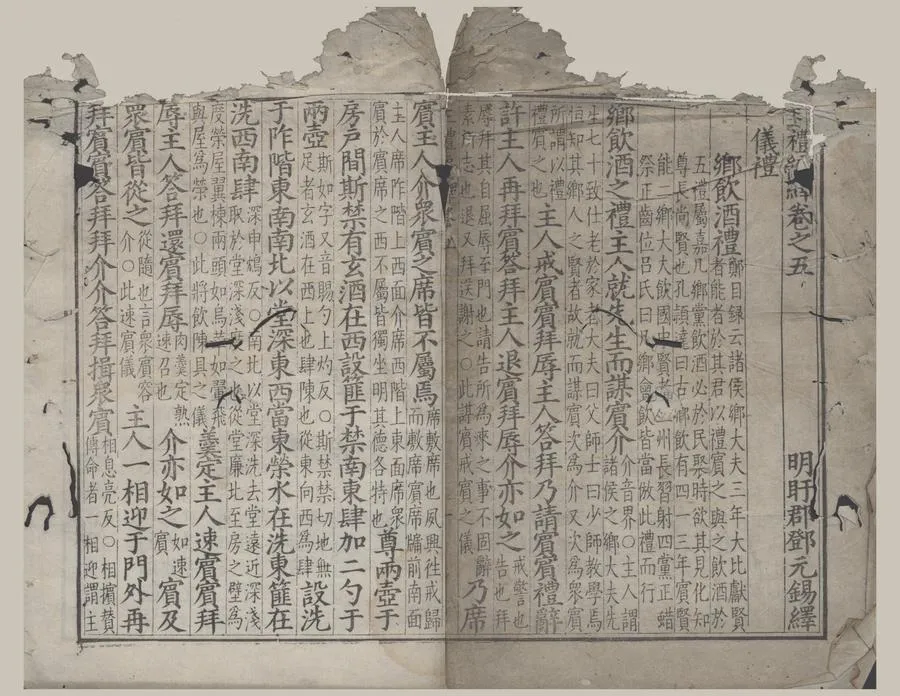 禮編繹卷之五　明盱郡鄧元錫繹
儀禮
鄉飲酒禮
鄭目録云諸侯鄉大夫三年大比獻賢
者能者於其君以禮賓之與之飲酒於
五禮屬嘉凡鄉黨飲酒必於民聚時欲其見化知
尊長尚賢也孔穎達曰古鄉飲有四一三年賓賢
能二鄉大夫飲國中賢者三州長習射四黨正蜡
祭正齒位呂氏曰凡鄉會飲皆當倣此禮而行
鄉飲酒之禮主人就先生而謀賓介
介音界○主人謂
諸侯之鄉大夫先
生七十致仕老於家者大夫曰父師士曰少師教學焉
恒知其鄉人之賢者故就而謀賓次為介又次為眾賓
所謂以禮
禮賓之也
主人戒賓賓拜辱主人答拜乃請賓禮辭
許主人再拜賓答拜主人退賓拜辱介亦如之
戒警也
告也拜
辱拜其自屈辱至門也請告所為來之事不固辭
素所有志也退又拜送謝之○此謀賓戒賓之儀
乃席
賓主人介眾賓之席皆不屬焉
席敷席也夙興徃戒歸
而敷席賓席牖前南面
主人席阼階上西面介席西階上東面席眾
賓於賓席之西不屬皆獨坐明其德各特也
尊兩壺于
房戶間斯禁有玄酒在西設篚于禁南東肆加二勺于
兩壺
斯如字又音賜勺上灼反○斯禁禁切地無
足者玄酒在西上也肆陳也從東向西為肆
設洗
于阼階東南南北以堂深東西當東榮水在洗東篚在
洗西南肆
深申鴆反○南北以堂深洗去堂遠近深淺
取於堂深淺度之也從堂廉北至房之壁為
度榮屋翼棟兩頭如鳥斯革如翬斯飛
與屋為榮也○此將飲陳具之儀
羹定主人速賓賓拜
辱主人答拜還賓拜辱
肉羹定熟
速召也
介亦如之
如速
賓
賓及
眾賓皆從之
從隨也言眾賓客
介○此速賓儀
主人一相迎于門外再
拜賓賓答拜拜介介答拜揖眾賓
相息亮反○相擯贊
傳命者一相迎謂主